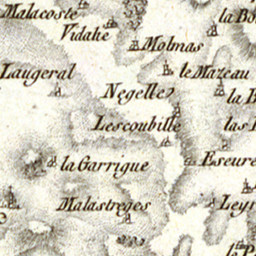 Malacoste
la Bo
Vidalie
Molmas
Laugeral
le Mazeau
Negelle
la B
Lescoubille
las
la Garrigue
Eseure
Malastreges
Ley